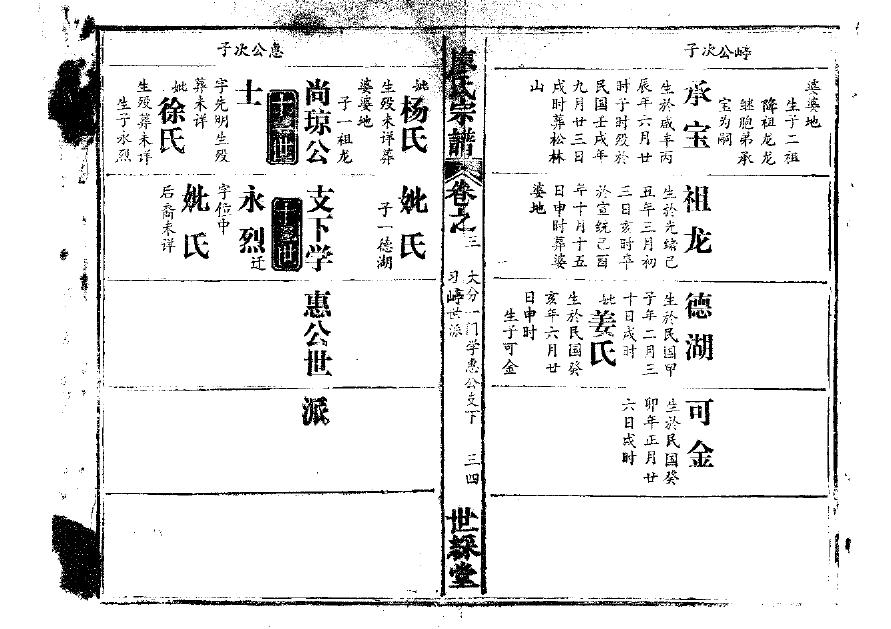 峙公次子
婆婆地
生子二祖
降祖龙龙
继胞弟承
宝为嗣
承宝
生於咸辛丙
辰年六月廿
时子时殁於
民国壬戌年
九月廿三日
戌时葬松林
山
祖龙
生於光绪己
丑年三月初
三日亥时卒
於宣统己酉
年十月十五
日申时葬婆
婆地
德湖
生於民国甲
子年二月三
十日戌时
妣姜氏
生於民国癸
亥年六月廿
日申时
生子可金
可金
生於民国癸
卯年正月廿
六日戌时
氏宗譜
卷之三
大分一门学惠公支下
习峙世派
三四
世綵堂
惠公次子
妣杨氏
生殁未详葬
婆婆地
子一祖龙
妣氏
子一德湖
尚琼公支下学惠公世派
士
字先明生殁
葬未详
妣徐氏
生殁葬未详
生子永烈
永烈迁
字位中
妣氏
后裔未详